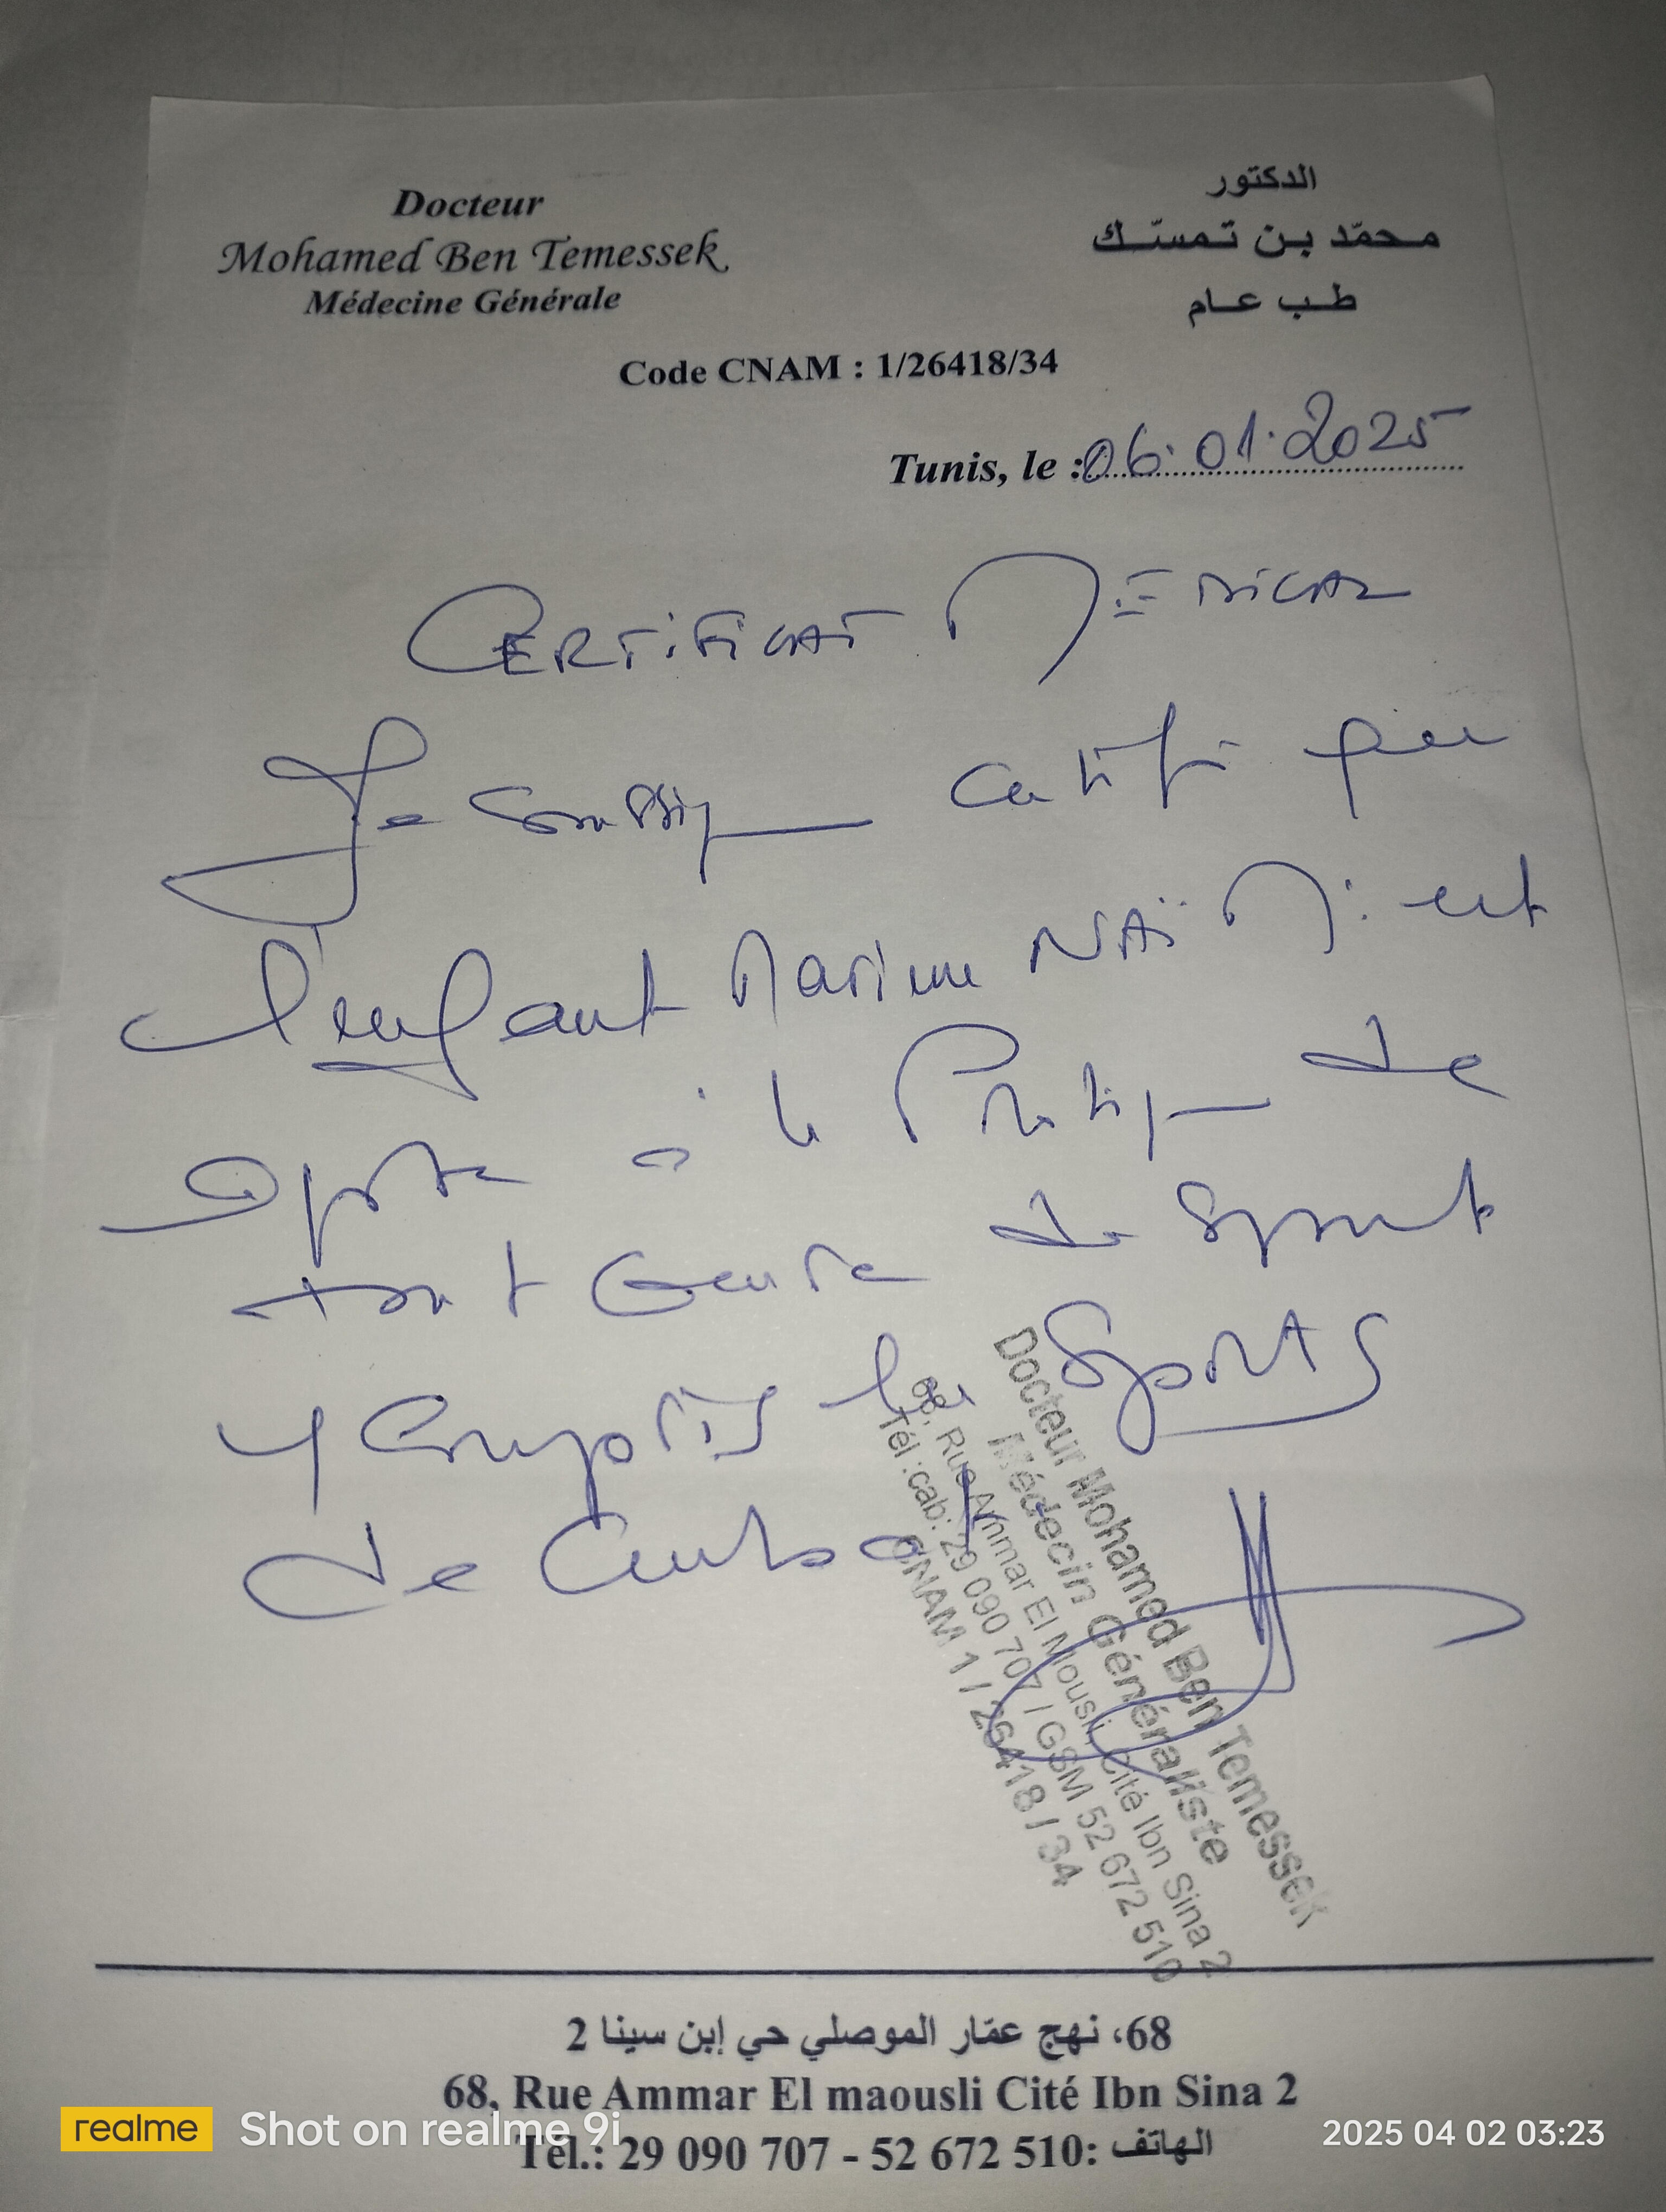 Docteur
Mohamed Ben Temessek
Médecine Générale
الدكتور
محمّد بن تمسّك
طب عام
Code CNAM : 1/26418/34
Tunis, le : 06.01.2025
CERTIFICAT MÉDICAL
Je soussigné certifie que
l'enfant NAÏMi est
apte à la Pratique de
tout Genre de Sport
y compris les SPORTS
de Combat
Docteur Mohamed Ben Temessek
Médecin Généraliste
68, Rue Ammar El Mousli, Cité Ibn Sina 2
Tél :cab: 29 090 707 / GSM 52 672 510
CNAM 1 / 26418 / 34
68، نهج عمّار الموصلي حي إبن سينا 2
68, Rue Ammar El maousli Cité Ibn Sina 2
Tél.: 29 090 707 - 52 672 510: الهاتف
realme Shot on realme 9i
2025 04 02 03:23